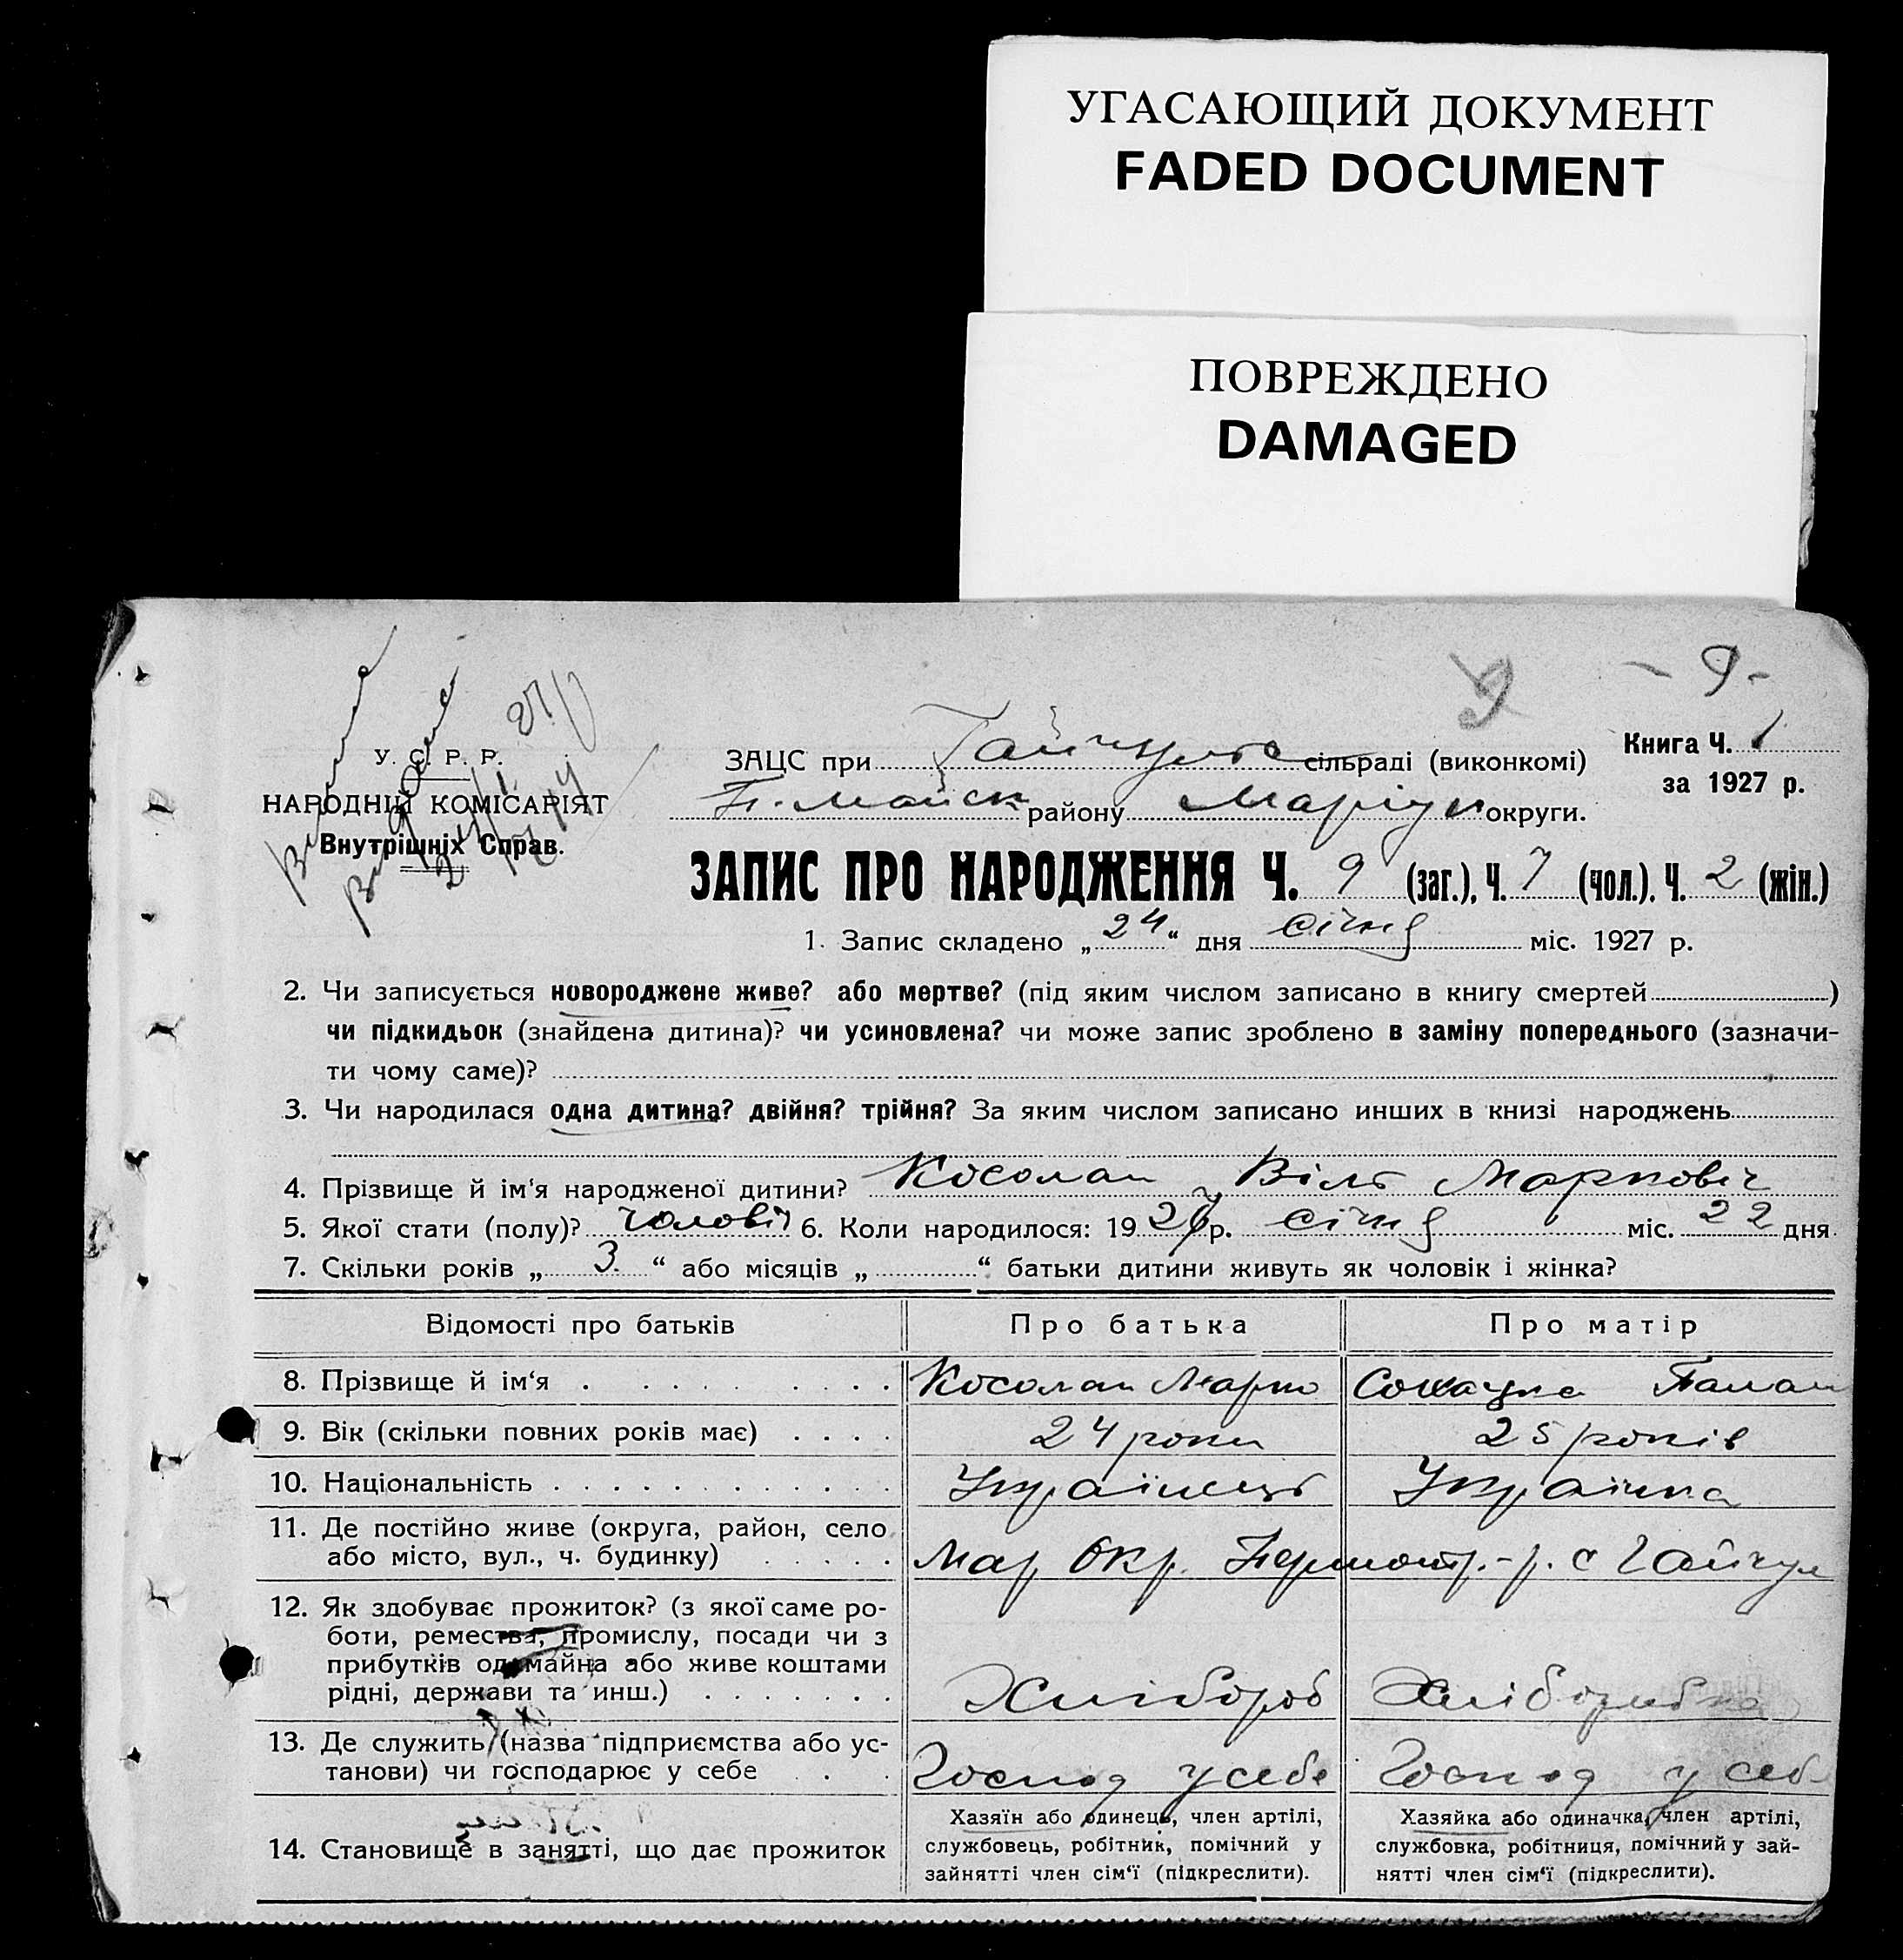 УГАСАЮЩИЙ ДОКУМЕНТ
FADED DOCUMENT
ПОВРЕЖДЕНО
DAMAGED
9 - 9 -
У. С. Р. Р.
НАРОДНІЙ КОМІСАРІЯТ
Внутрішніх Справ.
ЗАЦС при Гайчульс сільраді (виконкомі)
Книга Ч. 1
за 1927 р.
П.-Майськ району Маріуп округи.
ЗАПИС ПРО НАРОДЖЕННЯ Ч. 9 (заг.), Ч. 7 (чол.), Ч. 2 (жін.)
1. Запис складено „ 24 “ дня січня міс. 1927 р.
2. Чи записується новороджене живе? або мертве? (під яким числом записано в книгу смертей )
чи підкидьок (знайдена дитина)? чи усиновлена? чи може запис зроблено в заміну попереднього (зазначи-
ти чому саме)?
3. Чи народилася одна дитина? двійня? трійня? За яким числом записано инших в книзі народжень
4. Прізвище й ім'я народженої дитини? Косолап Віль Маркович
5. Якої стати (полу)? чоловіч 6. Коли народилося: 1927 р. січня міс. 22 дня
7. Скільки років „ 3. “ або місяців „ “ батьки дитини живуть як чоловік і жінка?
Відомості про батьків Про батька Про матір
8. Прізвище й ім'я Косолап Марко Палаг
9. Вік (скільки повних років має) 24 роки 25 років
10. Національність Українець Українка
11. Де постійно живе (округа, район, село
або місто, вул., ч. будинку) Мар Окр. р. с Гайчул
12. Як здобуває прожиток? (з якої саме ро-
боти, ремества, промислу, посади чи з
прибутків од майна або живе коштами
рідні, держави та инш.) Хлібороб Хліборобка
13. Де служить (назва підприємства або ус-
танови) чи господарює у себе Господ у себе Господ у себ
14. Становище в занятті, що дає прожиток
Хазяїн або одинець, член артілі,
службовець, робітник, помічний у
зайнятті член сім'ї (підкреслити).
Хазяйка або одиначка, член артілі,
службовка, робітниця, помічний у зай-
нятті член сім'ї (підкреслити).